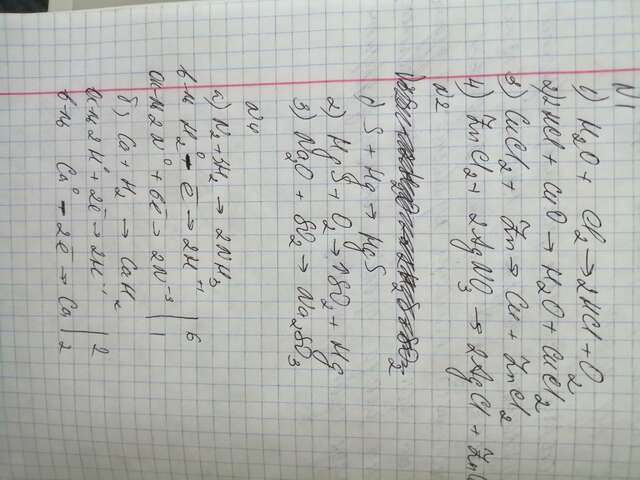 N1
1) H₂O + Cl₂ → 2HCl + O₂
2) 2HCl + CuO → H₂O + CuCl₂
3) CuCl₂ + Zn → Cu + ZnCl₂
4) ZnCl₂ + 2AgNO₃ → 2AgCl + Zn
N2
1) S + Hg → HgS
2) HgS + O₂ → SO₂ + Hg
3) Na₂O + SO₂ → Na₂SO₃
N4
а) N₂ + 3H₂ → 2NH₃
в-ль H₂⁰ - ē → 2H⁺¹ | 6
ок-ль 2N⁰ + 6ē → 2N⁻³ | 1
б) Ca + H₂ → CaH₂
ок-ль 2H⁺ + 2ē → 2H⁻¹ | 2
в-ль Ca⁰ - 2ē → Ca | 2